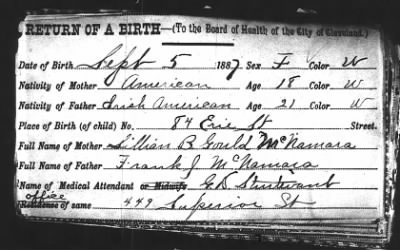 RETURN OF A BIRTH—(To the Board of Health of the City of Cleveland.)
Date of Birth Sept 5 1887 Sex F Color W
Nativity of Mother American Age 18 Color W
Nativity of Father Irish American Age 21 Color W
Place of Birth (of child) No. 84 Erie St Street.
Full Name of Mother Lillian B Gould McNamara
Full Name of Father Frank J McNamara
Name of Medical Attendant or Midwife G.D. Sturtevant
office
Residence of same 449 Superior St